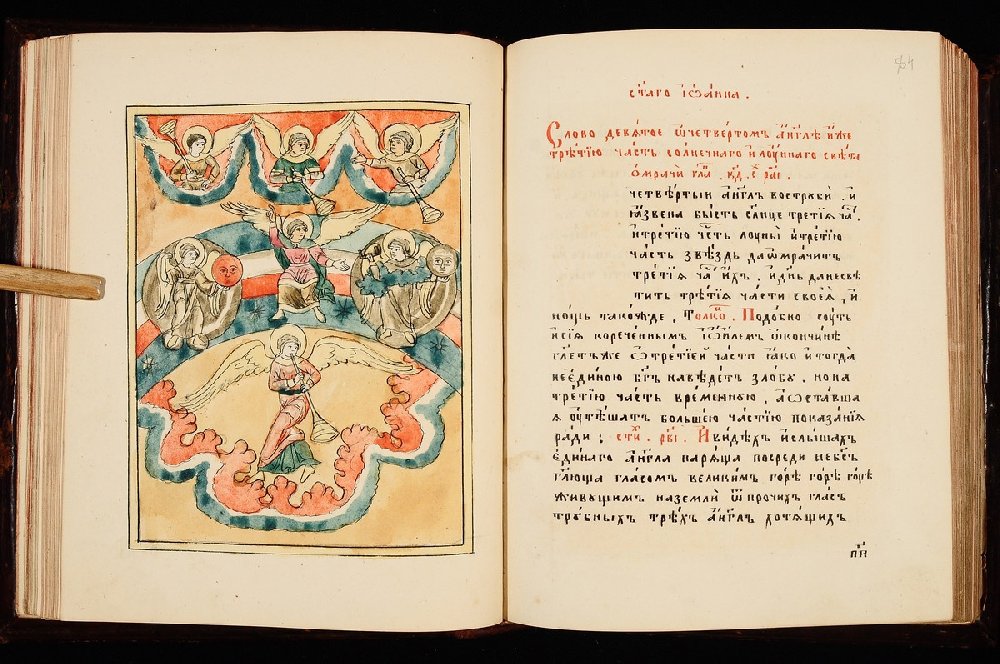 ст҃аго їѡ҆а́нна .
Сло́во девѧ́тое ѡ҆ четвертомъ а҆́нг҃лѣ и҆́же
тре́тїю часть со́лнечнаго и҆ лоу́ннаго свѣ́та
ѡ҆мрачи
четве́ртыи а҆́нг҃лъ вострꙋби . и҆
ꙗ҆́звена бы́сть сл҃нце третїѧ
и҆ тре́тїю ча́сть лоуны̀ и҆ тре́тїю
часть ѕвѣ́здъ да ѿмрачи́тъ
тре́тїѧ и҆́хъ , и҆ дн҃ь да не свѣ
титъ тре́тїѧ части своеѧ̀ , и҆
нощь такожде , Толко . Подо́бно соуть
и҆ сїѧ̀ нореченнымъ І҆ѡ҆и́лемъ ѡ҆ кончи́нѣ
гл҃етъ же ѿ тре́тїей части ꙗ҆́ко и҆ тогда̀
не є҆ди́ною бг҃ъ наведе́тъ ѕло́бꙋ , но на
тре́тїю часть вре́меннꙋю , а҆ ѡ҆ста́вша
ѧ оу҆тѣша́тъ бо́льшею ча́стїю показа́нїѧ
ради ; И҆ ви́дѣхъ и҆ слы́шахъ
є҆ди́наго а҆́нг҃ла парѧ́ща посредѝ небе́съ
гл҃юща гла́сомъ вели́кимъ го́ре го́ре го́ре
живꙋ́щимъ на землѝ ѿ про́чихъ гла́съ
трꙋ́бныхъ тре́хъ а҆́нг҃лъ хотѧ́щихъ